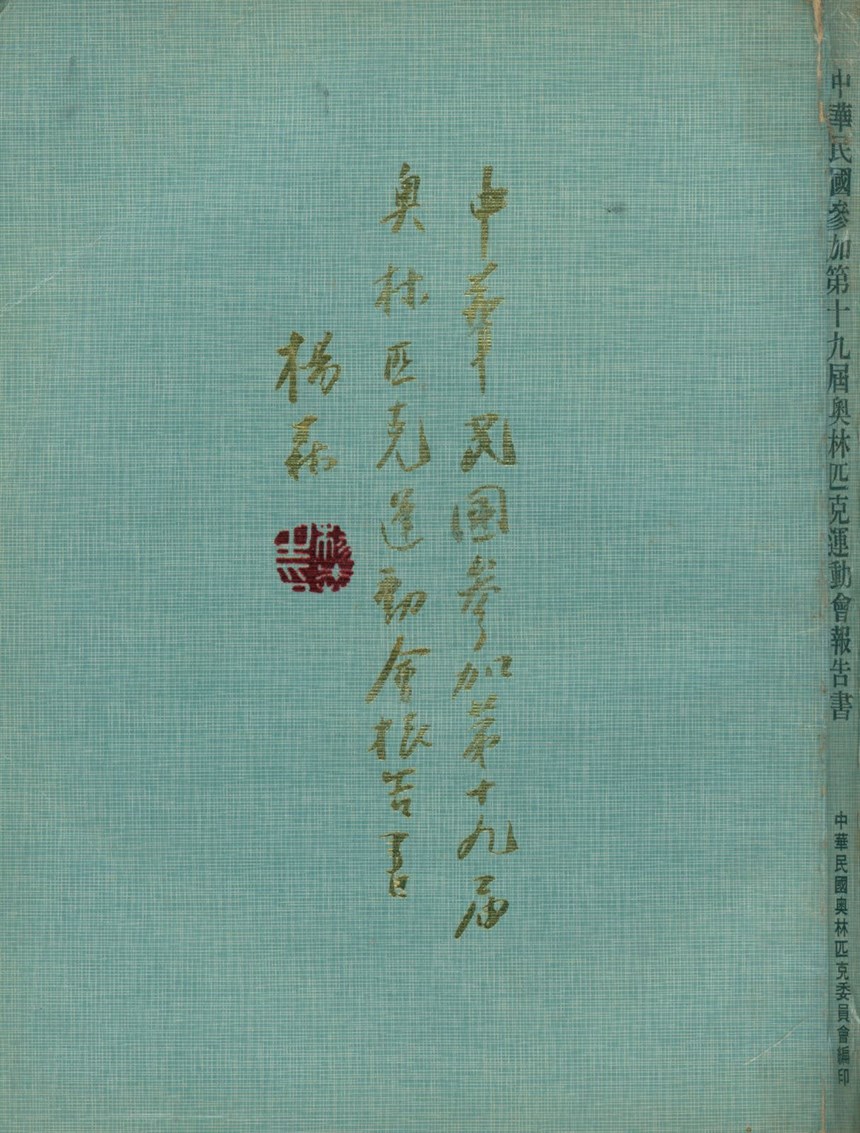 中華民国參加第十九屆
奥林匹克運動會報告書
楊森
中華民國參加第十九屆奥林匹克運動會報告書
中華民國奥林匹克委員會編印